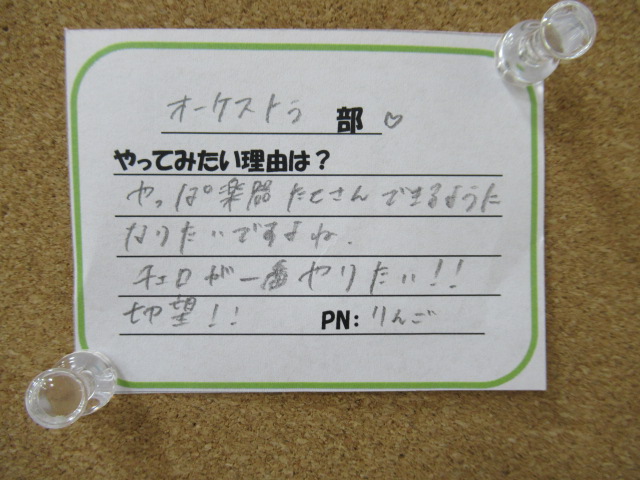 オーケストラ 部♡
やってみたい理由は？
やっぱ楽器たくさんできるように
なりたいですよね.
チェロが一番やりたい!!
切望!! PN:りんご